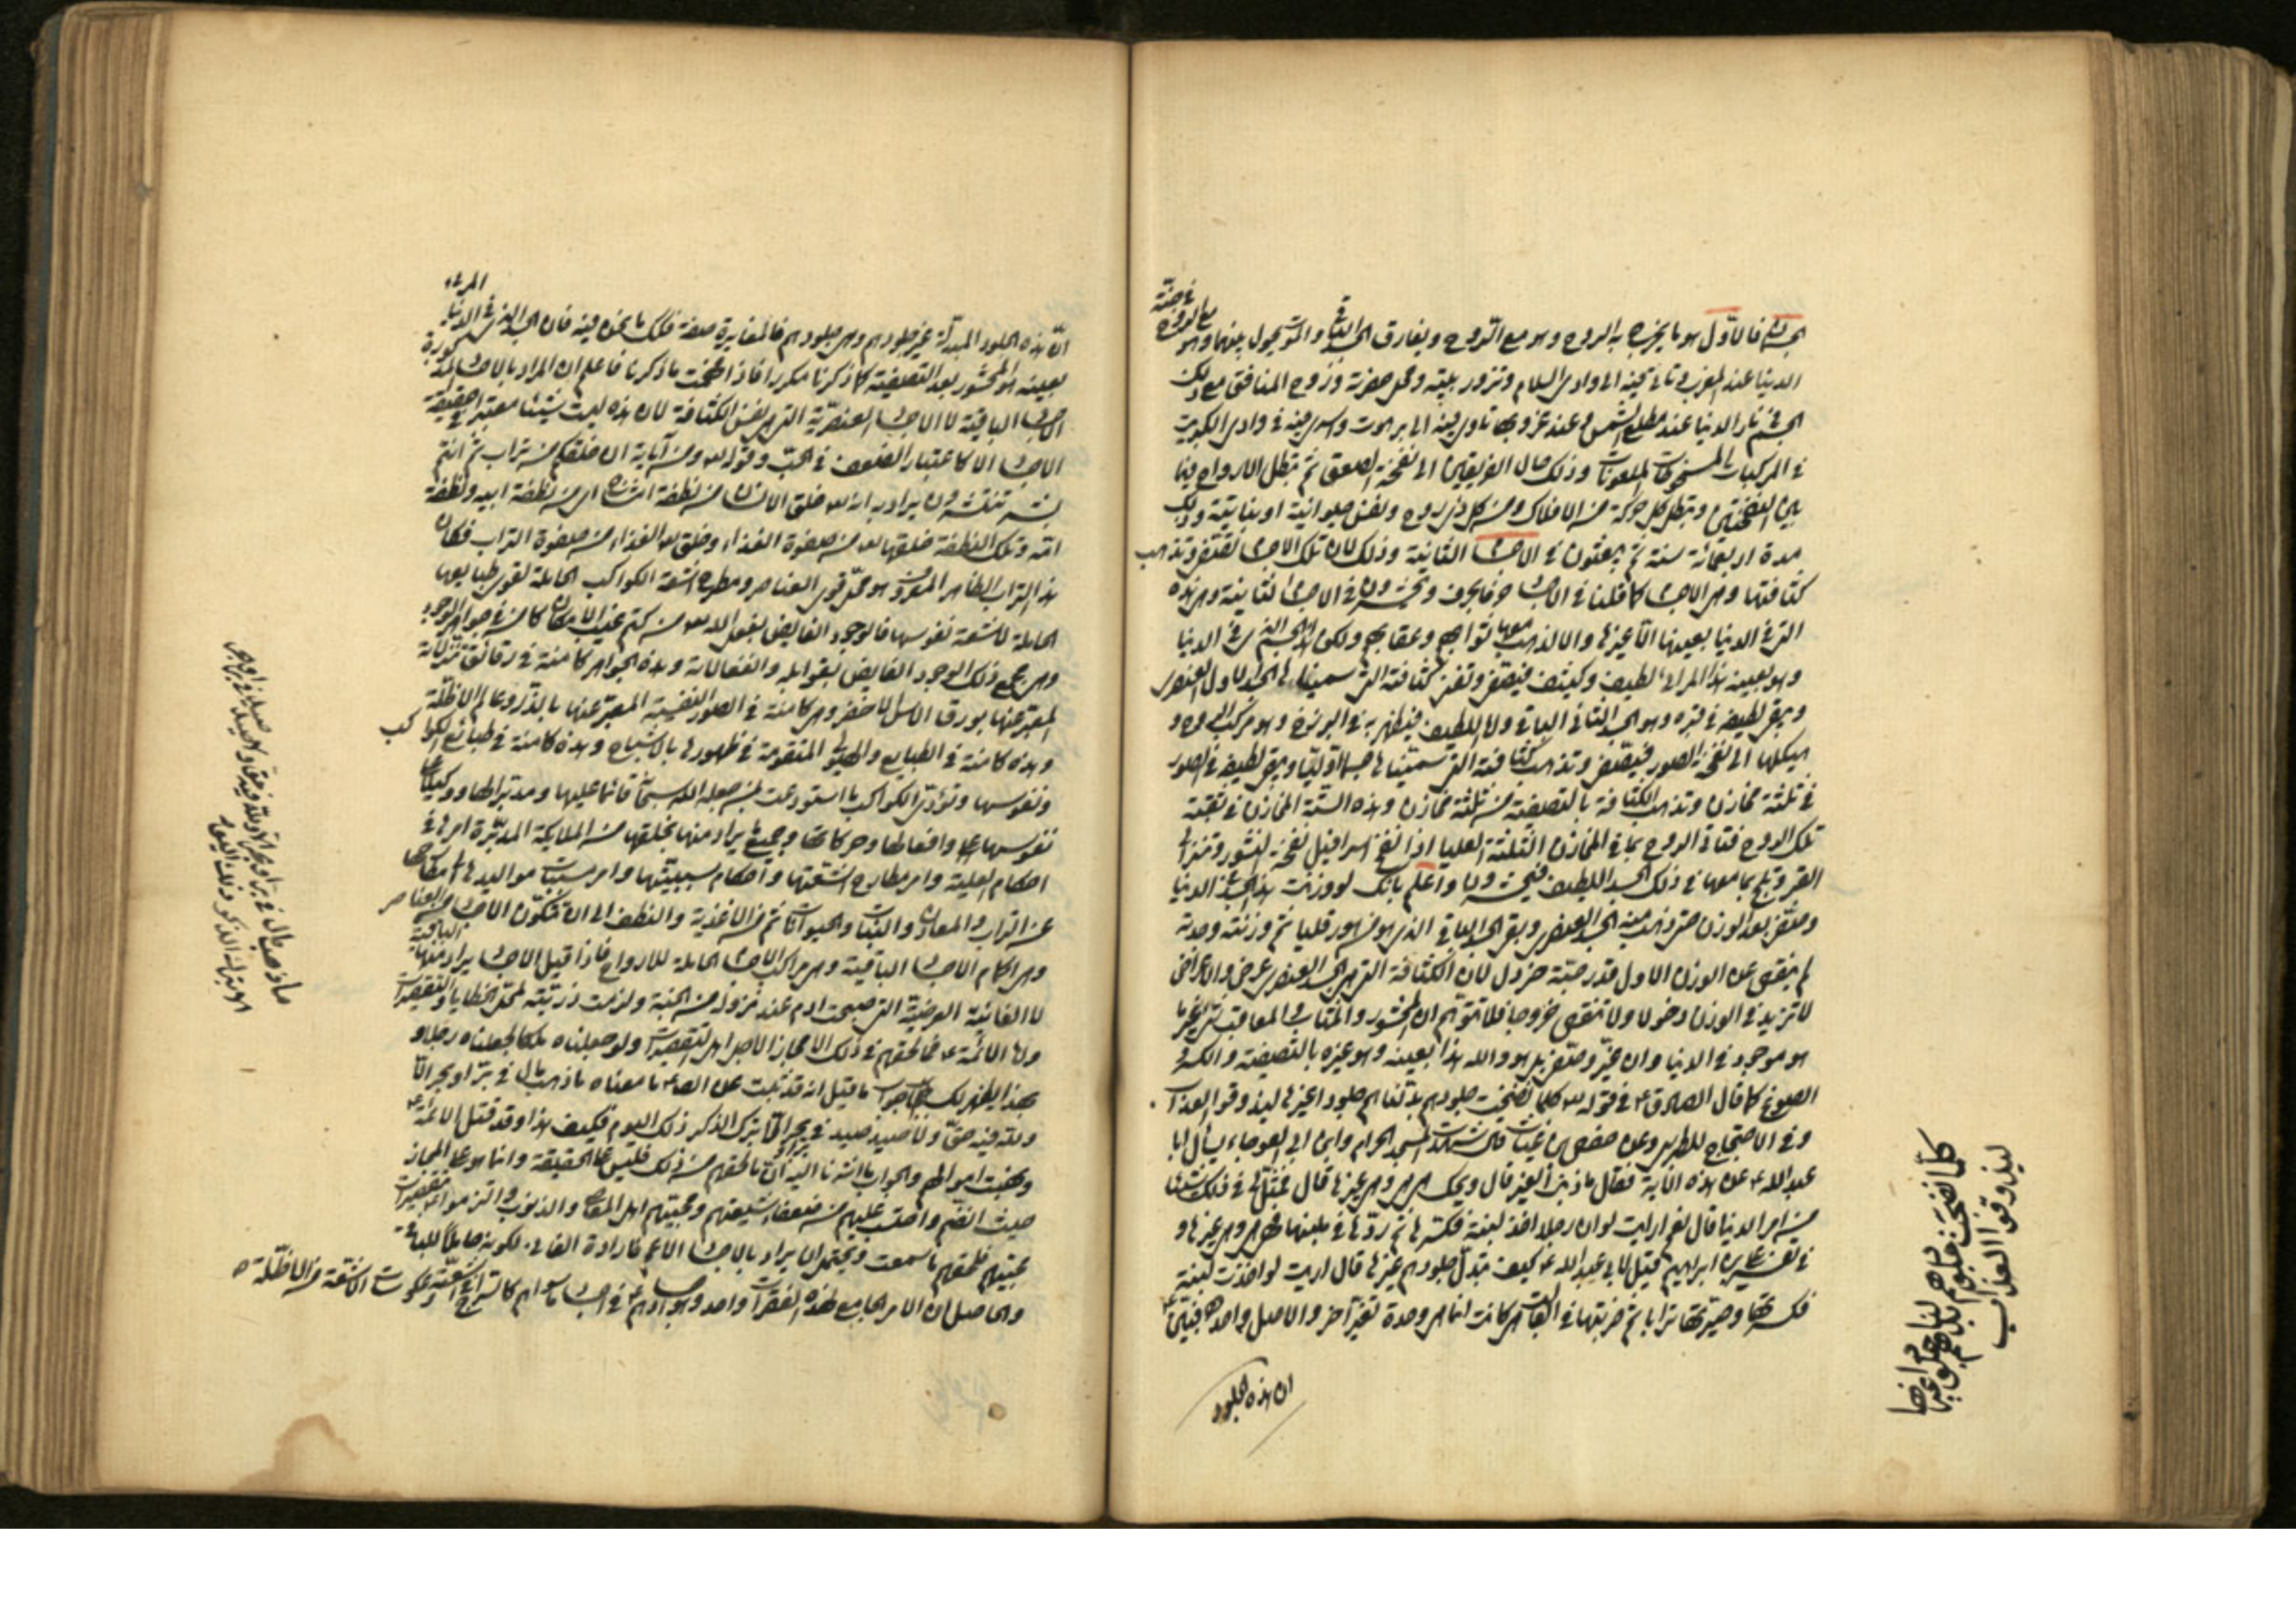 الجسم فالاول هو ما يخرج به الروح وهو مع الروح ويفارق الجسد الباقي والموت يحول بينهما وهو مع الروح في جنة
الدنيا عند المغرب تأتي فيه الى وادي السلام وتزور بيته ومحل حفرته وروح المنافق مع ذلك
الجسم في نار الدنيا عند مطلع الشمس وعند غروبها تأوي فيه الى برهوت وتسري فيه في وادي الكبريت
في المركبات المسخوطات الملعونات وذلك حال الفريقين الى نفخة الصعق ثم تبطل الارواح فيما
بين النفختين وتبطل كل حركة من الافلاك ومن كل ذي روح ونفس حيوانية او نباتية وذلك
مدة اربعمائة سنة ثم يبعثون في الاجسام الثانية وذلك لان تلك الاجسام تصفى وتذهب
كثافتها وهي الاجسام كما قلنا في الاجساد حرفا بحرف ويحشرون في الاجسام الثانية وهي هذه
التي في الدنيا بعينها لا غيرها والا لذهب معها ثوابهم وعقابهم ولكن هذا الجسد الذي في الدنيا
وهو بعينه هذا المرئي لطيف وكثيف فيصفى وتفنى كثافته التي سميناها الجسد الاول العنصري
ويبقى لطيفه في قبره وهو الجسد الثاني الباقي واما اللطيف فيظهر به في البرزخ وهو مركب الروح و
هيكلها الى نفخة الصور فيصفى وتذهب كثافته التي سميناها جسما اوليا ويبقى لطيفه في الصور
في ثلثة مخازن وتذهب الكثافة بالتصفية من ثلثة مخازن وهذه الستة المخازن في ثقبة
تلك الروح فتأتي الروح بما في المخازن الثلثة العليا اذا نفخ اسرافيل نفخة النشور وتنزل الى
القبر وتلج بما معها في ذلك الجسد اللطيف فيحشرون واعلم بانك لو وزنت هذا الجسد في الدنيا
وصفي بعد الوزن حتى ذهب منه الجسد العنصري وبقي الجسد الباقي الذي هو من هورقليا ثم وزنته وجدته
لم ينقص عن الوزن الاول قدر حبة خردل لان الكثافة التي هي الجسد العنصري عرض والاعراض
لا تزيد في الوزن دخولا ولا تنقص خروجا فلا تتوهم ان المحشور والمثاب والمعاقب شيء غير ما
هو موجود في الدنيا وان غير وصفي بل هو والله هذا بعينه وهو غيره بالتصفية والكسر و
الصوغ كما قال الصادق ع في قوله تع كلما نضجت جلودهم بدلناهم جلودا غيرها ليذوقوا العذاب
وفي الاحتجاج للطبرسي وعن حفص بن غياث قال شهدت المسجد الحرام وابن ابي العوجاء يسأل ابا
عبد الله ع عن هذه الآية فقال ما ذنب الغير قال ويحك هي هي وهي غيرها قال فمثل لي في ذلك شيئا
من امر الدنيا قال نعم ارايت لو ان رجلا اخذ لبنة فكسرها ثم ردها في ملبنها فهي هي وهي غيرها و
في تفسير علي بن ابراهيم قيل لابي عبد الله ع كيف تبدل جلودهم غيرها قال ارايت لو اخذت لبنة
فكسرتها وصيرتها ترابا ثم ضربتها في القالب اهي كانت انما هي وحدة تغير آخر والاصل واحد فبين ع
ان هذه الجلود
كلما نضجت جلودهم بدلناهم جلودا غيرها
ليذوقوا العذاب
ان هذه الجلود المبدلة غير جلودهم وهي جلودهم فالمغايرة صفة فكذلك ما نحن فيه فان الجسد الذي في الدنيا المرئي
بعينه هو المحشور بعد التصفية كما ذكرنا مكررا فاذا فهمت ما ذكرنا فاعلم ان المراد بالاجساد المذكورة
الاجساد الباقية لا الاجساد العنصرية التي هي نفس الكثافة لان هذه ليست شيئا معتبرا في حقيقة
الاجساد الا كاعتبار العفوص في الحب وقوله تع ومن آياته ان خلقكم من تراب ثم اذا انتم
بشر تنتشرون يراد به انه تع خلق الانسان من نطفة امشاج اي من نطفة ابيه ونطفة
امه وتلك النطفة خلقها تع من صفوة الغذاء وخلق تع الغذاء من صفوة التراب فكان
هذا التراب الظاهر المعروف هو محل قوى العناصر ومطرح اشعة الكواكب الحاملة لقوى طبايعها
الحاملة لاشعة نفوسها فالوجود الفايض بفعل الله تع من كتم غيب الامكان كامن في جواهر الوجود
وهي مجمع ذلك الوجود الفايض بقوابله وانفعالاته وهذه الجواهر كامنة في رقائق تنزلاته
المعبر عنها بورق الآس الاخضر وهي كامنة في الصور النفسية المعبر عنها بالذر وعالم الاظلة
وهذه كامنة في الطبايع والهيولى المتقومة في ظهورها بالاشباح وهذه كامنة في طبائع الكواكب
ونفوسها وتؤدي الكواكب ما استودعت لمن جعله الله سبحانه قائما عليها ومدبرا لها ووكيلا على
نفوسها وافعالها وحركاتها وجميع ما يراد منها بخلقها من الملائكة المدبرة امرها في
احكام العلية وامر مطارح اشعتها واحكام سببيتها وامر مسببات مواليدها
عن التراب والمعادن والنبات والحيوانات ثم من الاغذية والنطف الى ان تتكون الاجساد من العناصر
وهي احكام الاجساد الباقية وهي مراكب الاجسام الحاملة للارواح فاذا قيل الاجساد يراد منها الباقية
لا الفانية العرضية التي صحبت ادم عند نزوله من الجنة ولزمت ذريته لمحل الخطايا والتقصيرات
واما الائمة ع فما لحقهم في ذلك الا مجازا لاجل اهل التقصيرات ولو جعلناه ملكا لجعلناه رجلا و
بهذا يظهر لك جواب ما قيل انه قد ثبت عن الصادق ع ما معناه ما ذهب مال في بر او بحر الا
ولله فيه حق ولا صيد صيد في بحر او بر الا بترك الذكر ذلك اليوم فكيف هذا وقد قتل الائمة ع
ونهبت اموالهم والجواب ما اشرنا اليه ان ما لحقهم من ذلك فليس على الحقيقة وانما هو على المجاز
حيث انضم وانتسب عليهم من ضعفاء شيعتهم ومحبيهم اهل المعاصي والذنوب والتزموا تقصيرات
محبيهم فلحقهم ما سمعت ويحتمل ان يراد بالاجساد الاعم فارادة الفاني لكونه حاملا للباقي
والحاصل ان الامر الجامع لهذه الفقرات واحد وهو انهم ع في اجساد سواهم كالسراج في اشعته وعكوسات الاشعة من الاظلة